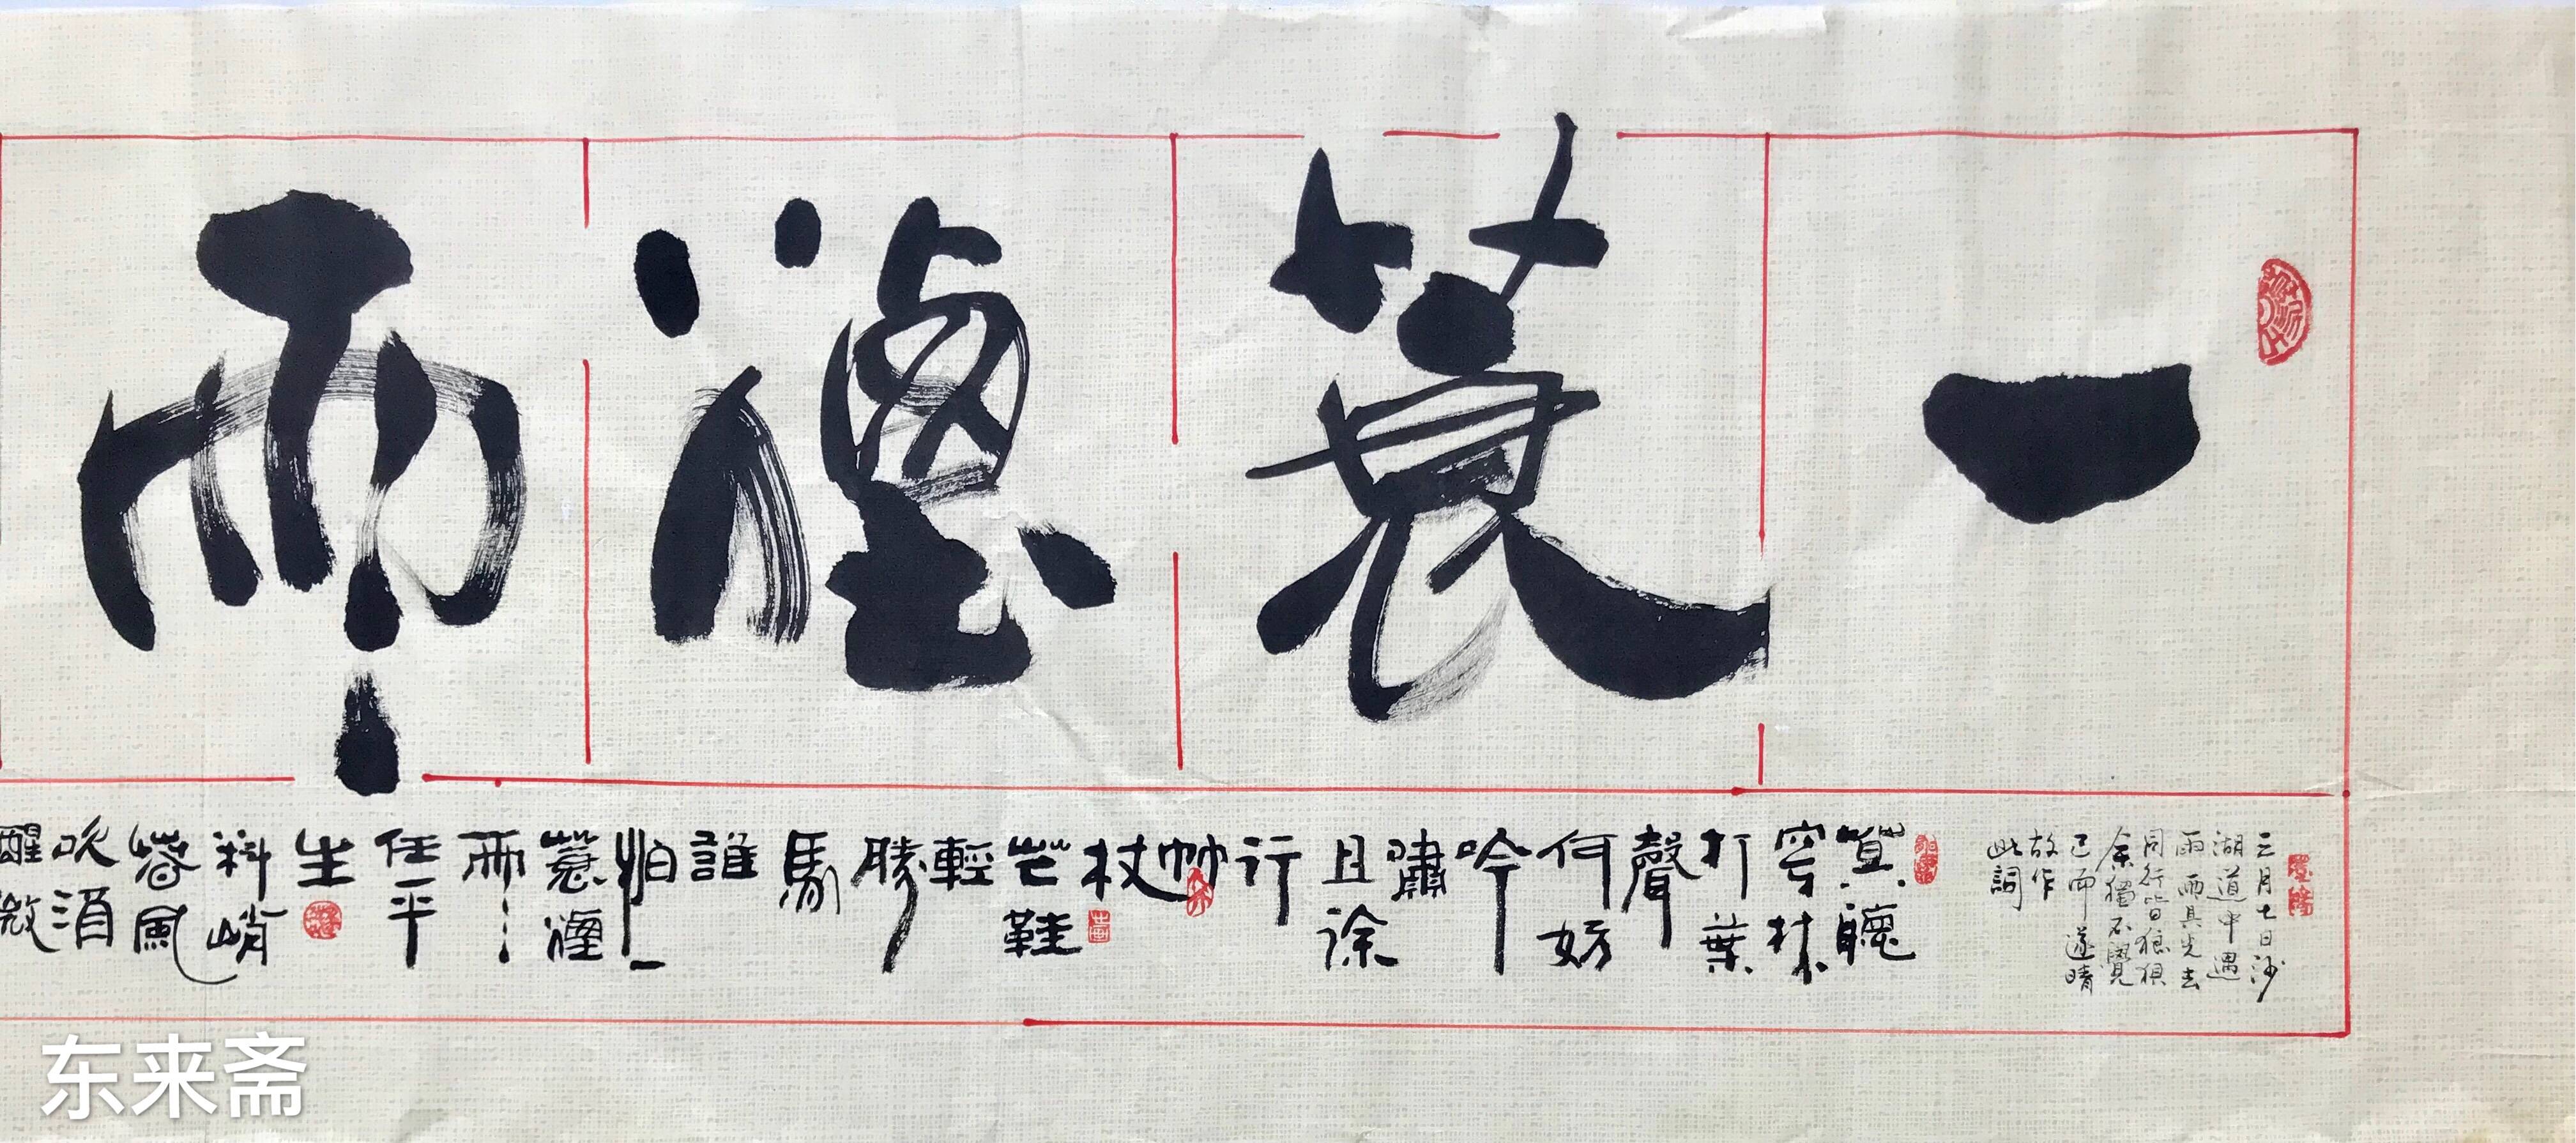 一蓑煙雨
三月七日沙
湖道中遇
雨雨具先去
同行皆狼狽
余獨不覺
已而遂晴
故作
此詞
莫聽
穿林
打葉
聲
何妨
吟
嘯
且徐
行
竹
杖
芒鞋
輕
勝
馬
誰
怕一
蓑煙
雨
任平
生
料峭
春風
吹酒
醒微
东来斋